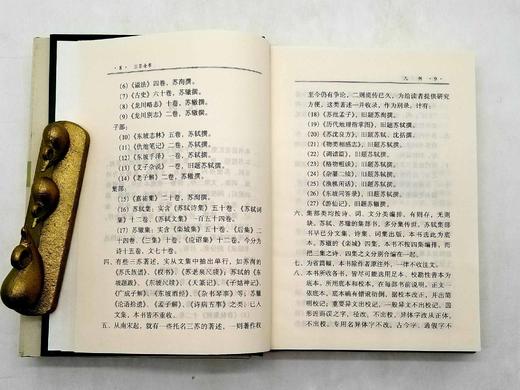 · 8 · 三苏全书
(6)《谥法》四卷，苏洵撰。
(7)《古史》六十卷，苏辙撰。
(8)《龙川略志》十卷，苏辙撰。
(9)《龙川别志》二卷，苏辙撰。
子部：
(10)《东坡志林》五卷，苏轼撰。
(11)《仇池笔记》二卷，苏轼撰。
(12)《东坡手泽》一卷，苏轼撰。
(13)《艾子杂说》一卷，旧题苏轼撰。
(14)《老子解》二卷，苏辙撰。
集部：
(15)《嘉祐集》二卷，苏洵撰。
(16) 苏轼集：实含《苏轼诗集》五十卷，《苏轼词集》十二卷，《苏轼文集》一百五十四卷。
(17) 苏辙集：实含《栾城集》五十卷，《后集》二十四卷，《三集》十卷，《应诏集》十二卷，今分为诗十五卷，文七十卷。
四、有些三苏著述，实从文集中抽出单行，如苏洵的
《苏氏族谱》、《权书》、《苏老泉尺牍》，苏轼的《东
坡题跋》、《东坡尺牍》、《天篆记》、《子姑神记》、
《广成子解》、《东坡酒经》、《杂书琴事》等；苏辙
《论语拾遗》、《孟子解》、《诗病五事》之类；已入
文集，本书皆不重收。
五、从南宋起，就有一些托名三苏的著述，一则著作权
凡例 · 9 ·
至今仍有争论，二则流传已久，为给读者提供研究
方便，这类著述一并收录，作为别录，计有：
(18)《苏批孟子》，旧题苏洵撰。
(19)《历代地理指掌图》，旧题苏轼撰。
(20)《苏沈良方》，苏轼、沈括撰。
(21)《物类相感志》，旧题苏轼撰。
(22)《调谑篇》，旧题苏轼撰。
(23)《格物粗谈》，旧题苏轼撰。
(24)《杂纂二续》，旧题苏轼撰。
(25)《渔樵闲话》，旧题苏轼撰。
(26)《东坡问答录》，旧题苏轼撰。
(27)《游仙记》，旧题苏辙撰。
六、集部类均按诗、词、文分类编排，有则存，无则
缺。苏轼、苏辙的集部书，多分集外行，但苏轼集
部书早已分文集、诗集、词集出版，本书适此为
底本。苏辙的《栾城》四集，本书不按四集编排，而
把三集之诗、四集之文分别合在一起编排。
七、为省篇幅，本书除作者原注外，不一律不作注文。
八、本书所收各书，皆尽可能选用足本、校勘性善本为
底本，所用底本和校本，在每部书前说明。正文一
依底本，底本确有错讹衍倒，据校本改正，并出简
明校记。重要异文出校记，一般异文不出校记。因
形近而误之字，径改，不出校，异体字改从正体，
不出校，专用名异体字不改。古今字、通假字不